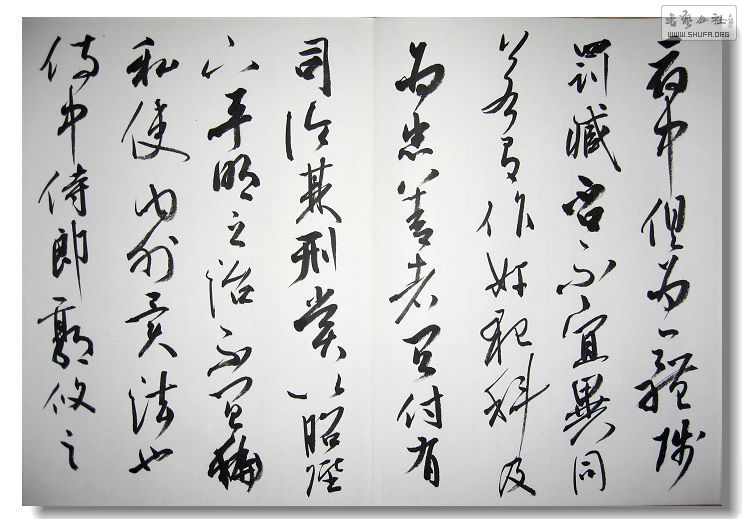 書藝公社
WWW.SHUFA.ORG
府中俱为一體陟
罰臧否不宜異同
若有作奸犯科及
为忠善者宜付有
司论其刑赏以昭陛
下平明之治不宜偏
私使内外异法也
侍中侍郎郭攸之